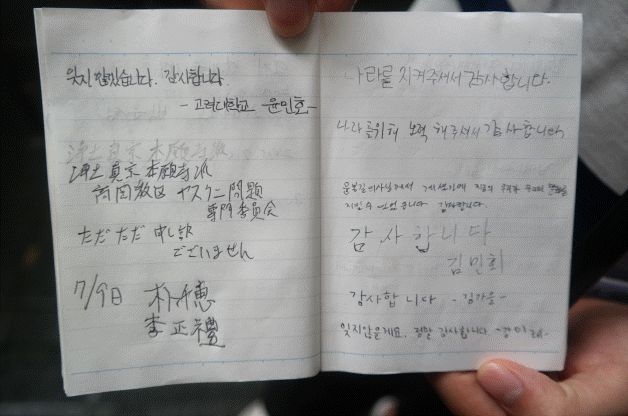 잊지 않겠습니다. 감사합니다.
- 고려대학교 윤민호 -
浄土真宗本願寺派
浄土真宗本願寺派
教区ヤスクニ問題
専門委員会
ただただ申し訳
ございません
7/9日 朴
李正禮
나라를 지켜주셔서 감사합니다.
나라를 위해 노력 해주셔서 감사합니다
계셨기에
있습니다 감사합니다.
감사합니다
김민희
감사합니다 - 김가을 -
잊지않을게요. 정말 감사합니다